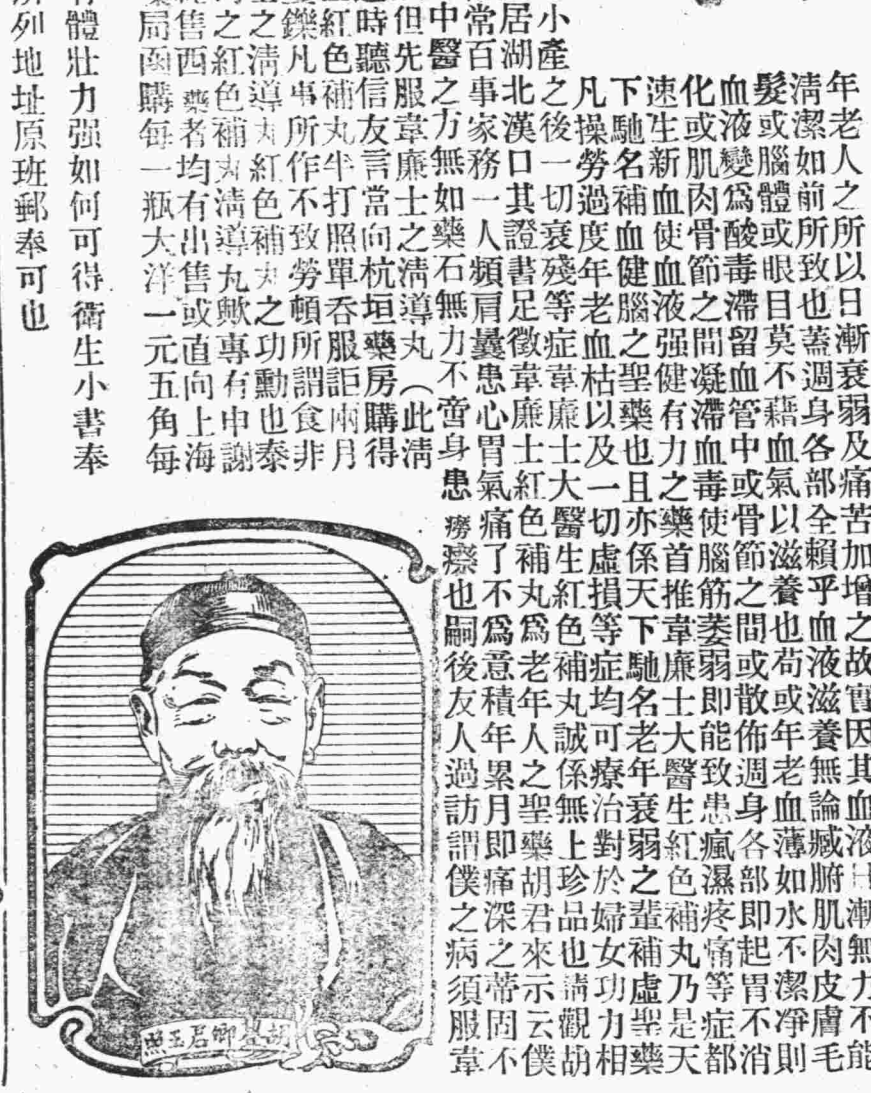 年老人之所以日漸衰弱及痛苦加增之故實因其血液日漸無力不能
淸潔如前所致也蓋週身各部全賴乎血液滋養無論臟腑肌肉皮膚毛
髮或腦體或眼目莫不藉血氣以滋養也苟或年老血薄如水不潔凈則
血液變爲酸毒滯留血管中或骨節之間或散佈週身各部即起胃不消
化或肌肉骨節之間凝滯血毒使腦筋萎弱即能致患瘋濕疼痛等症都
速生新血使血液强健有力之藥首推韋廉士大醫生紅色補丸乃是天
下馳名補血健腦之聖藥也且亦係天下馳名老年衰弱之輩補虛聖藥
凡操勞過度年老血枯以及一切虛損等症均可療治對於婦女功力相
小產之後一切衰殘等症韋廉士大醫生紅色補丸誠係無上珍品也請觀胡
居湖北漢口其證書足徵韋廉士紅色補丸爲老年人之聖藥胡君來示云僕
常百事家務一人頻肩曩患心胃氣痛了不爲意積年累月即痛深之蒂固不
中醫之方無如藥石無力不啻身患癆瘵也嗣後友人過訪謂僕之病須服韋
但先服韋廉士之淸導丸（此淸
時聽信友言當向杭垣藥房購得
紅色補丸半打照單吞服詎兩月
鑠凡事所作不致勞頓所謂食非
之淸導丸紅色補丸之功勳也泰
之紅色補丸淸導丸歟專有申謝
售西藥者均有出售或直向上海
局函購每一瓶大洋一元五角每
體壯力强如何可得衛生小書奉
列地址原班郵奉可也
胡卿君玉照